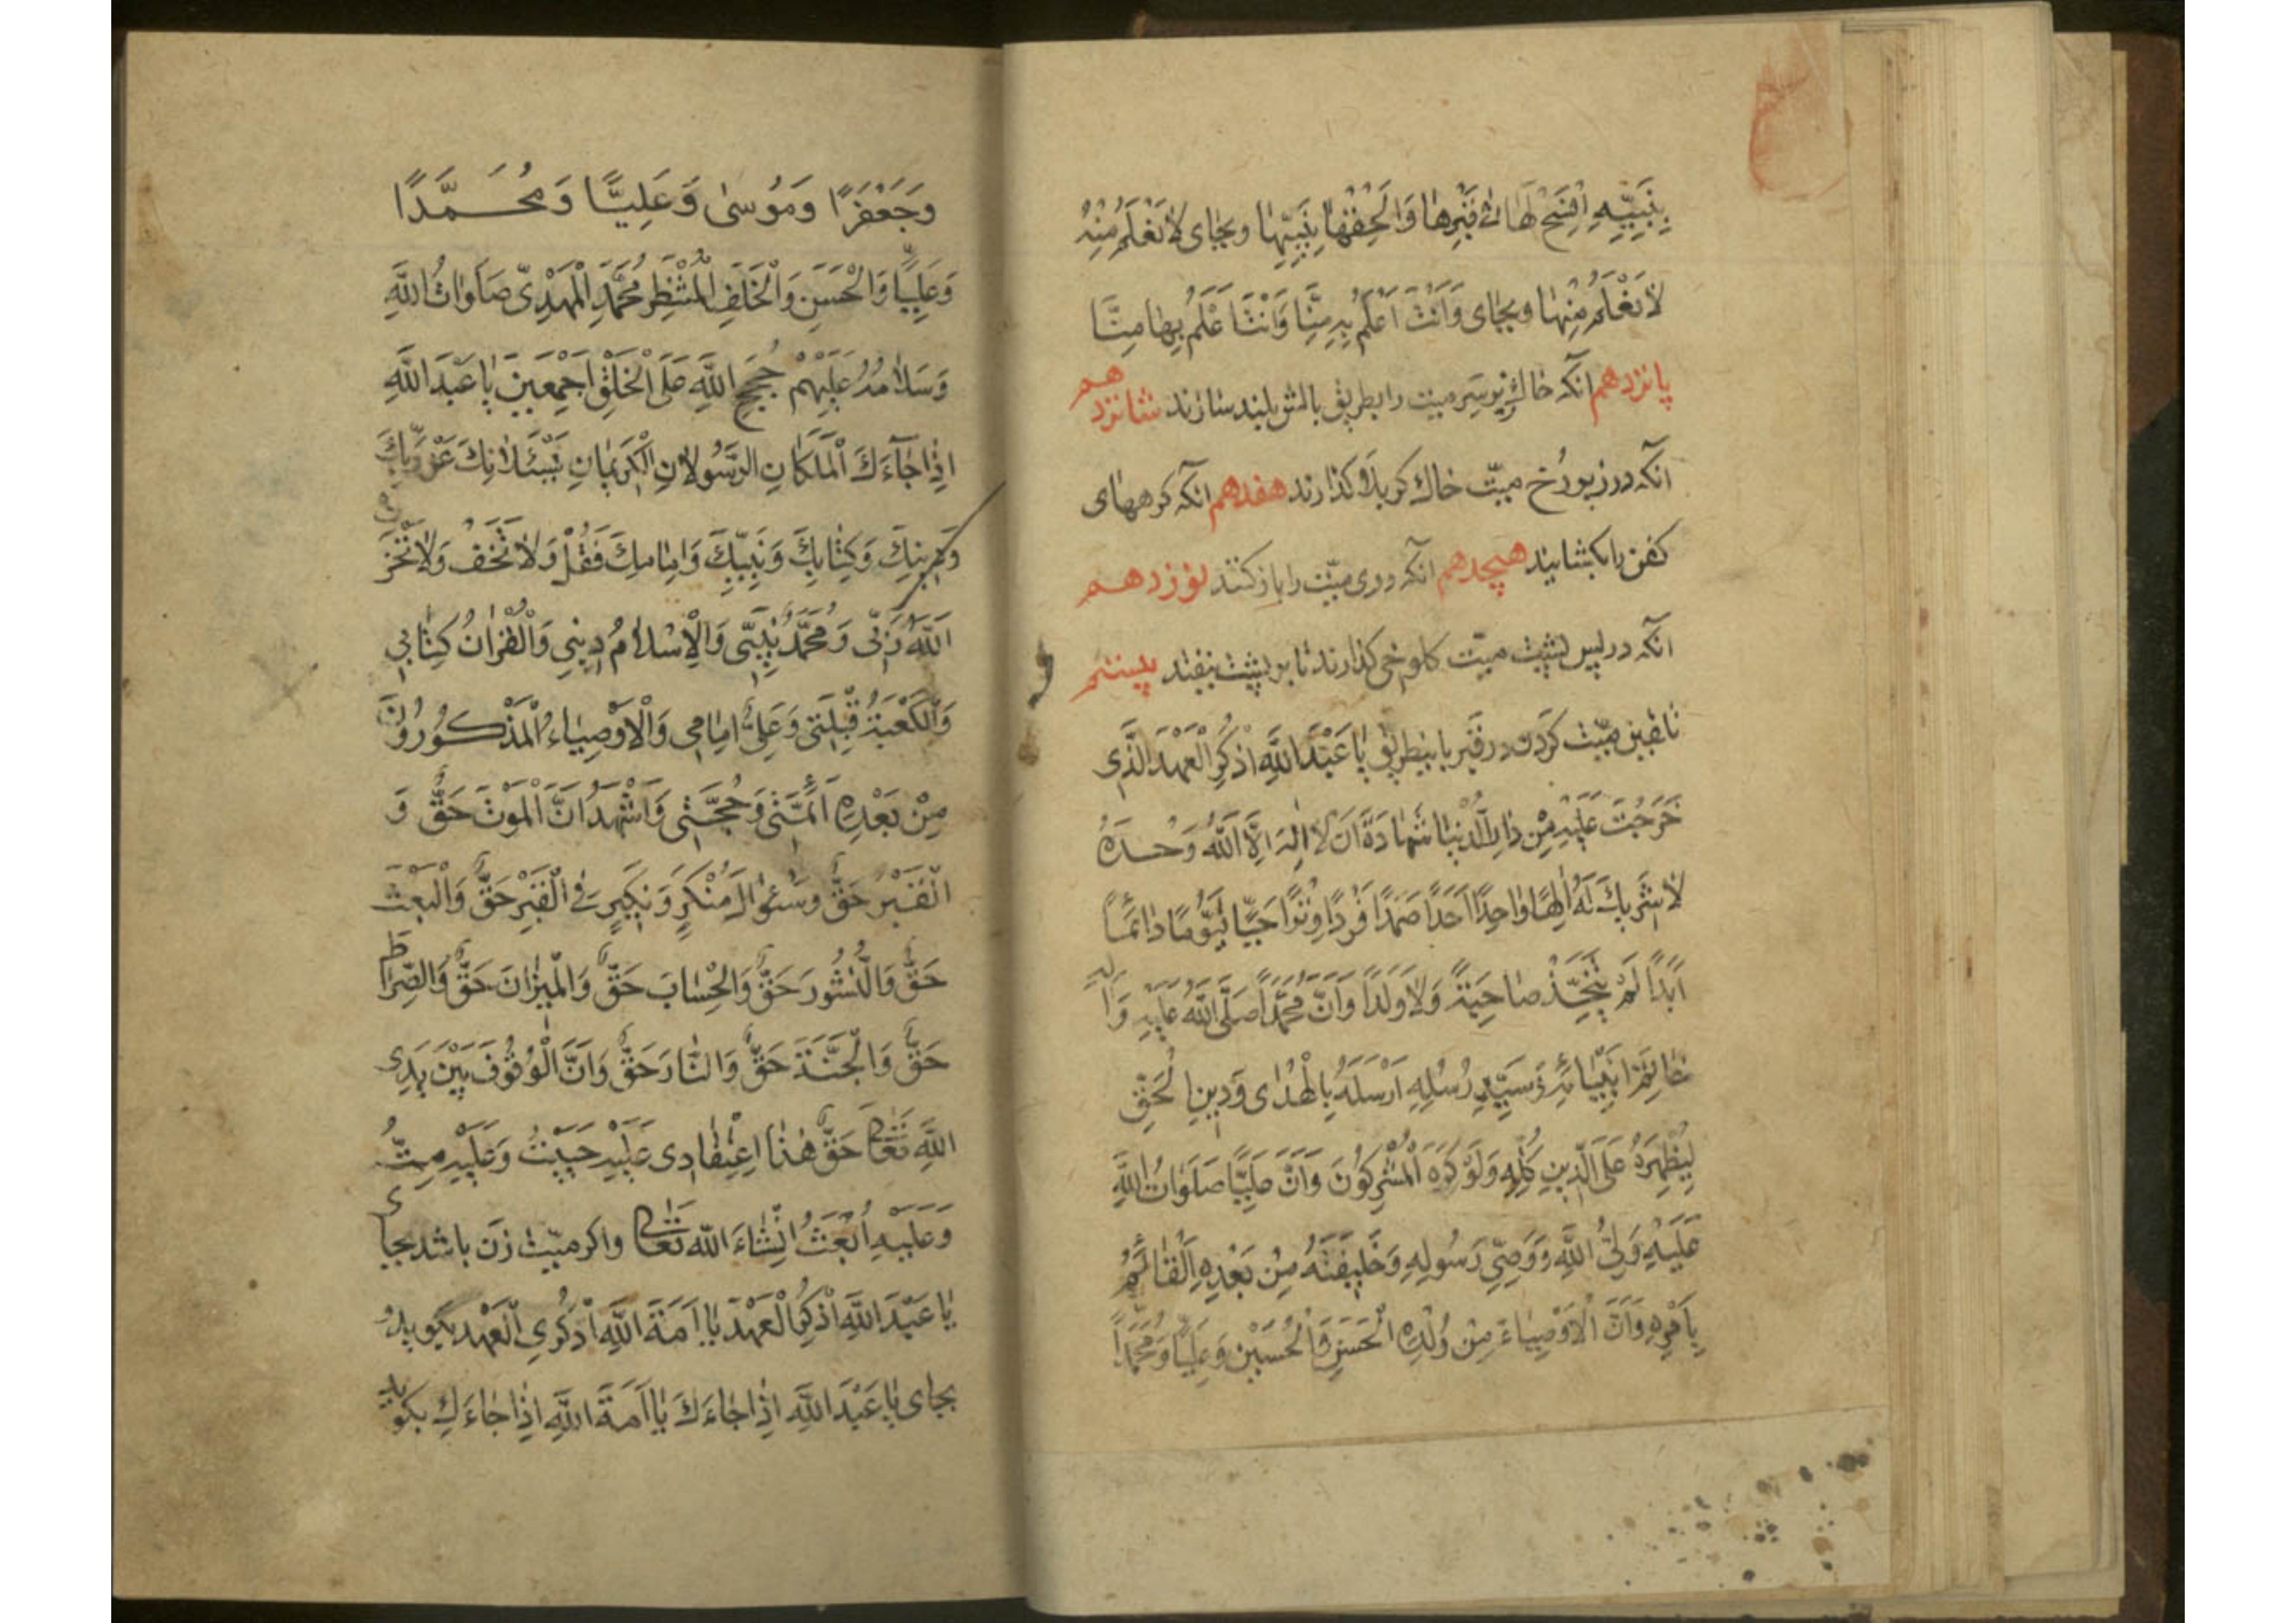 بِنَبِیِّهِ اِفْسَحْ لَهَا فِی قَبْرِهَا وَاَلْحِقْهَا بِنَبِیِّهَا وبجای لَا نَعْلَمُ مِنْهُ
لَا نَعْلَمُ مِنْهَا وبجای وَاَنْتَ اَعْلَمُ بِهِ مِنَّا وَاَنْتَ اَعْلَمُ بِهَا مِنَّا
پانزدهم آنکه خاك زیر سر میت را بطریق بالش بلند سازند شانزدهم
آنکه در زیر رُخ میّت خاك کربلا گذارند هفدهم آنکه گرههای
کفن را بگشایند هیجدهم آنکه روی میّت را باز کنند نوزدهم
آنکه در پس پشت میّت کلوخی گذارند تا بر پشت نیفتد بیستم
تلقین میّت کردن در قبر باینطریق یَا عَبْدَ اللَّهِ اذْکُرِ الْعَهْدَ الَّذِی
خَرَجْتَ عَلَیْهِ مِنْ دَارِ الدُّنْیَا شَهَادَةَ اَنْ لَا اِلٰهَ اِلَّا اللَّهُ وَحْدَهُ
لَا شَرِیكَ لَهُ اِلٰهًا وَاحِدًا اَحَدًا صَمَدًا فَرْدًا وِتْرًا حَیًّا قَیُّومًا دَائِمًا
اَبَدًا لَمْ یَتَّخِذْ صَاحِبَةً وَلَا وَلَدًا وَاَنَّ مُحَمَّدًا صَلَّی اللَّهُ عَلَیْهِ وَآلِهِ
خَاتَمُ اَنْبِیَائِهِ وَسَیِّدُ رُسُلِهِ اَرْسَلَهُ بِالْهُدٰی وَدِینِ الْحَقِّ
لِیُظْهِرَهُ عَلَی الدِّینِ کُلِّهِ وَلَوْ کَرِهَ الْمُشْرِکُونَ وَاَنَّ عَلِیًّا صَلَوَاتُ اللَّهِ
عَلَیْهِ وَلِیُّ اللَّهِ وَوَصِیُّ رَسُولِهِ وَخَلِیفَتُهُ مِنْ بَعْدِهِ الْقَائِمُ
بِاَمْرِهِ وَاَنَّ الْاَوْصِیَاءَ مِنْ وُلْدِهِ الْحَسَنِ وَالْحُسَیْنِ وَعَلِیًّا وَمُحَمَّدًا
وَجَعْفَرًا وَمُوسٰی وَعَلِیًّا وَمُحَمَّدًا
وَعَلِیًّا وَالْحَسَنِ وَالْخَلَفِ الْمُنْتَظَرِ مُحَمَّدِ الْمَهْدِیِّ صَلَوَاتُ اللَّهِ
وَسَلَامُهُ عَلَیْهِمْ حُجَجِ اللَّهِ عَلَی الْخَلْقِ اَجْمَعِینَ یَا عَبْدَ اللَّهِ
اِذَا جَآءَكَ الْمَلَکَانِ الرَّسُولَانِ الْکَرِیمَانِ یَسْئَلَانِكَ عَنْ رَبِّكَ
وَدِینِكَ وَکِتَابِكَ وَنَبِیِّكَ وَاِمَامِكَ فَقُلْ وَلَا تَخَفْ وَلَا تَحْزَنْ
اَللَّهُ رَبِّی وَمُحَمَّدٌ نَبِیِّی وَالْاِسْلَامُ دِینِی وَالْقُرْاٰنُ کِتَابِی
وَالْکَعْبَةُ قِبْلَتِی وَعَلِیٌّ اِمَامِی وَالْاَوْصِیَاءُ الْمَذْکُورُونَ
مِنْ بَعْدِهِ اَئِمَّتِی وَحُجَّتِی وَاَشْهَدُ اَنَّ الْمَوْتَ حَقٌّ وَ
الْقَبْرَ حَقٌّ وَسُئُوالَ مُنْکَرٍ وَنَکِیرٍ فِی الْقَبْرِ حَقٌّ وَالْبَعْثَ
حَقٌّ وَالنُّشُورَ حَقٌّ وَالْحِسَابَ حَقٌّ وَالْمِیزَانَ حَقٌّ وَالصِّرَاطَ
حَقٌّ وَالْجَنَّةَ حَقٌّ وَالنَّارَ حَقٌّ وَاَنَّ الْوُقُوفَ بَیْنَ یَدَیِ
اللَّهِ تَعَالٰی حَقٌّ هٰذَا اعْتِقَادِی عَلَیْهِ حَیَیْتُ وَعَلَیْهِ مِتُّ
وَعَلَیْهِ اُبْعَثُ اِنْشَاءَ اللَّه تَعَالٰی واگر میّت زن باشد بجای
یَا عَبْدَ اللَّهِ اذْکُرِ الْعَهْدَ یَا اَمَةَ اللَّهِ اذْکُرِی الْعَهْدَ بگوید و
بجای یَا عَبْدَ اللَّهِ اِذَا جَاءَكَ یَا اَمَةَ اللَّهِ اِذَا جَاءَكِ بگوید